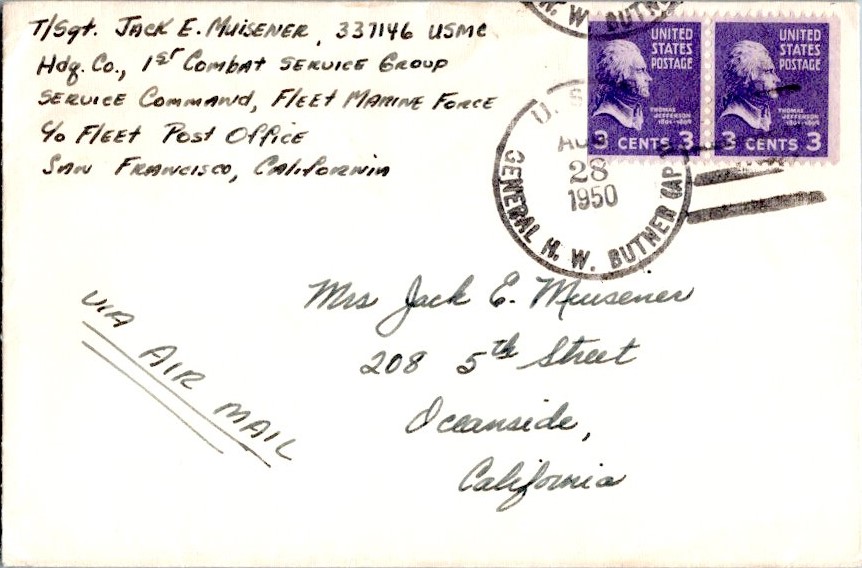 T/Sgt. JACK E. MUISENER, 337146 USMC
Hdq. Co., 1st COMBAT SERVICE GROUP
SERVICE COMMAND, FLEET MARINE FORCE
c/o FLEET POST OFFICE
SAN FRANCISCO, CALIFORNIA
W. BUTNER
UNITED STATES POSTAGE
THOMAS JEFFERSON
1801-1809
3 CENTS 3
UNITED STATES POSTAGE
THOMAS JEFFERSON
1801-1809
3 CENTS 3
U. S.
AUG
28
1950
GENERAL H. W. BUTNER (AP
VIA AIR MAIL
Mrs Jack E. Muisener
208 5th Street
Oceanside,
California